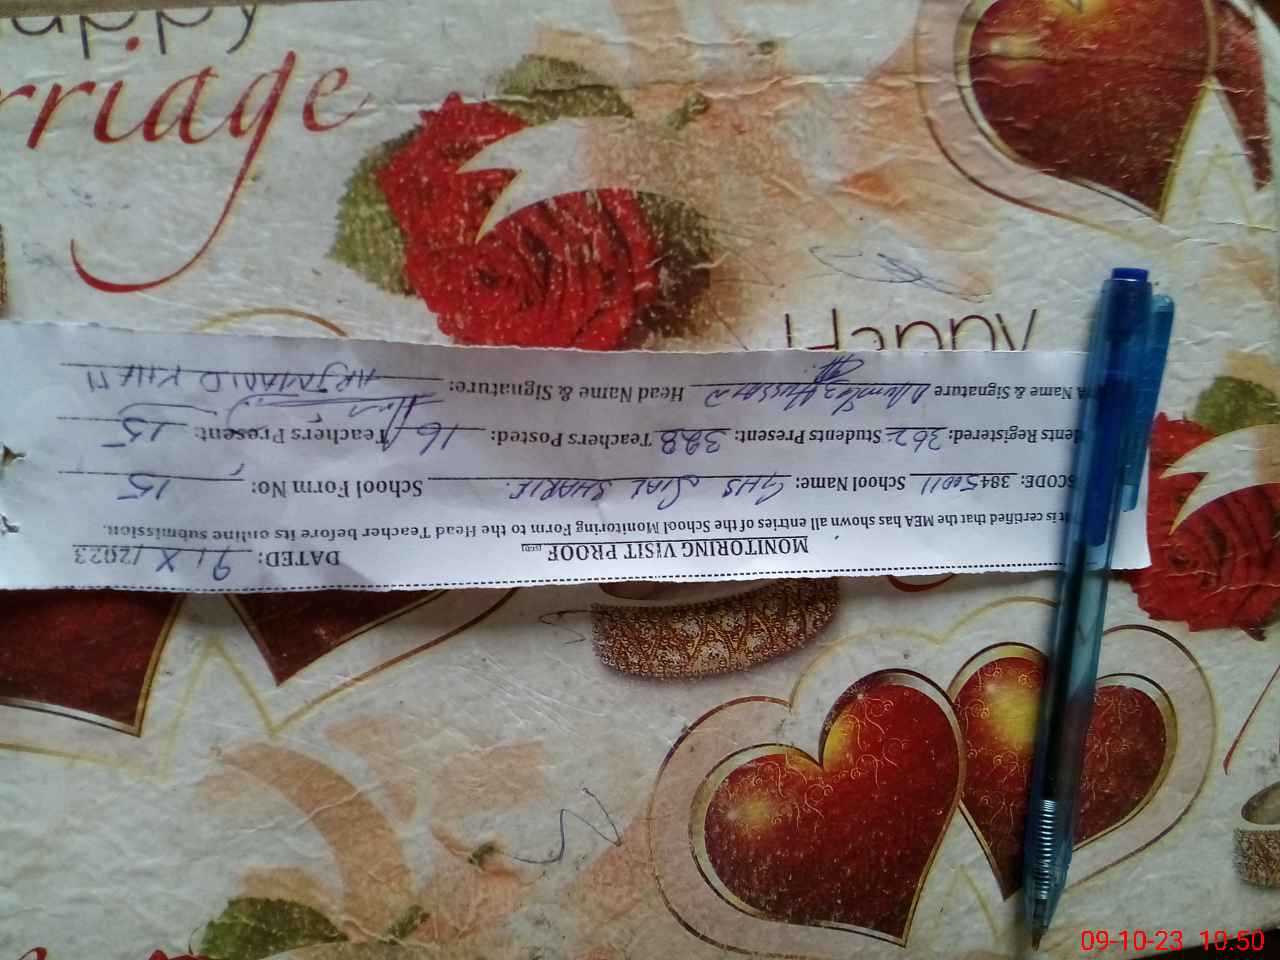 Happy
rriage
Happy
MONITORING VISIT PROOF DATED: 9/X/2023
It is certified that the MEA has shown all entries of the School Monitoring Form to the Head Teacher before its online submission.
SCODE: 38450011 School Name: GHS SIAL SHARIF. School Form No: 15
dents Registered: 362 Students Present: 328 Teachers Posted: 16 Teachers Present: 15
A Name & Signature Hussain Head Name & Signature:
09-10-23 10:50